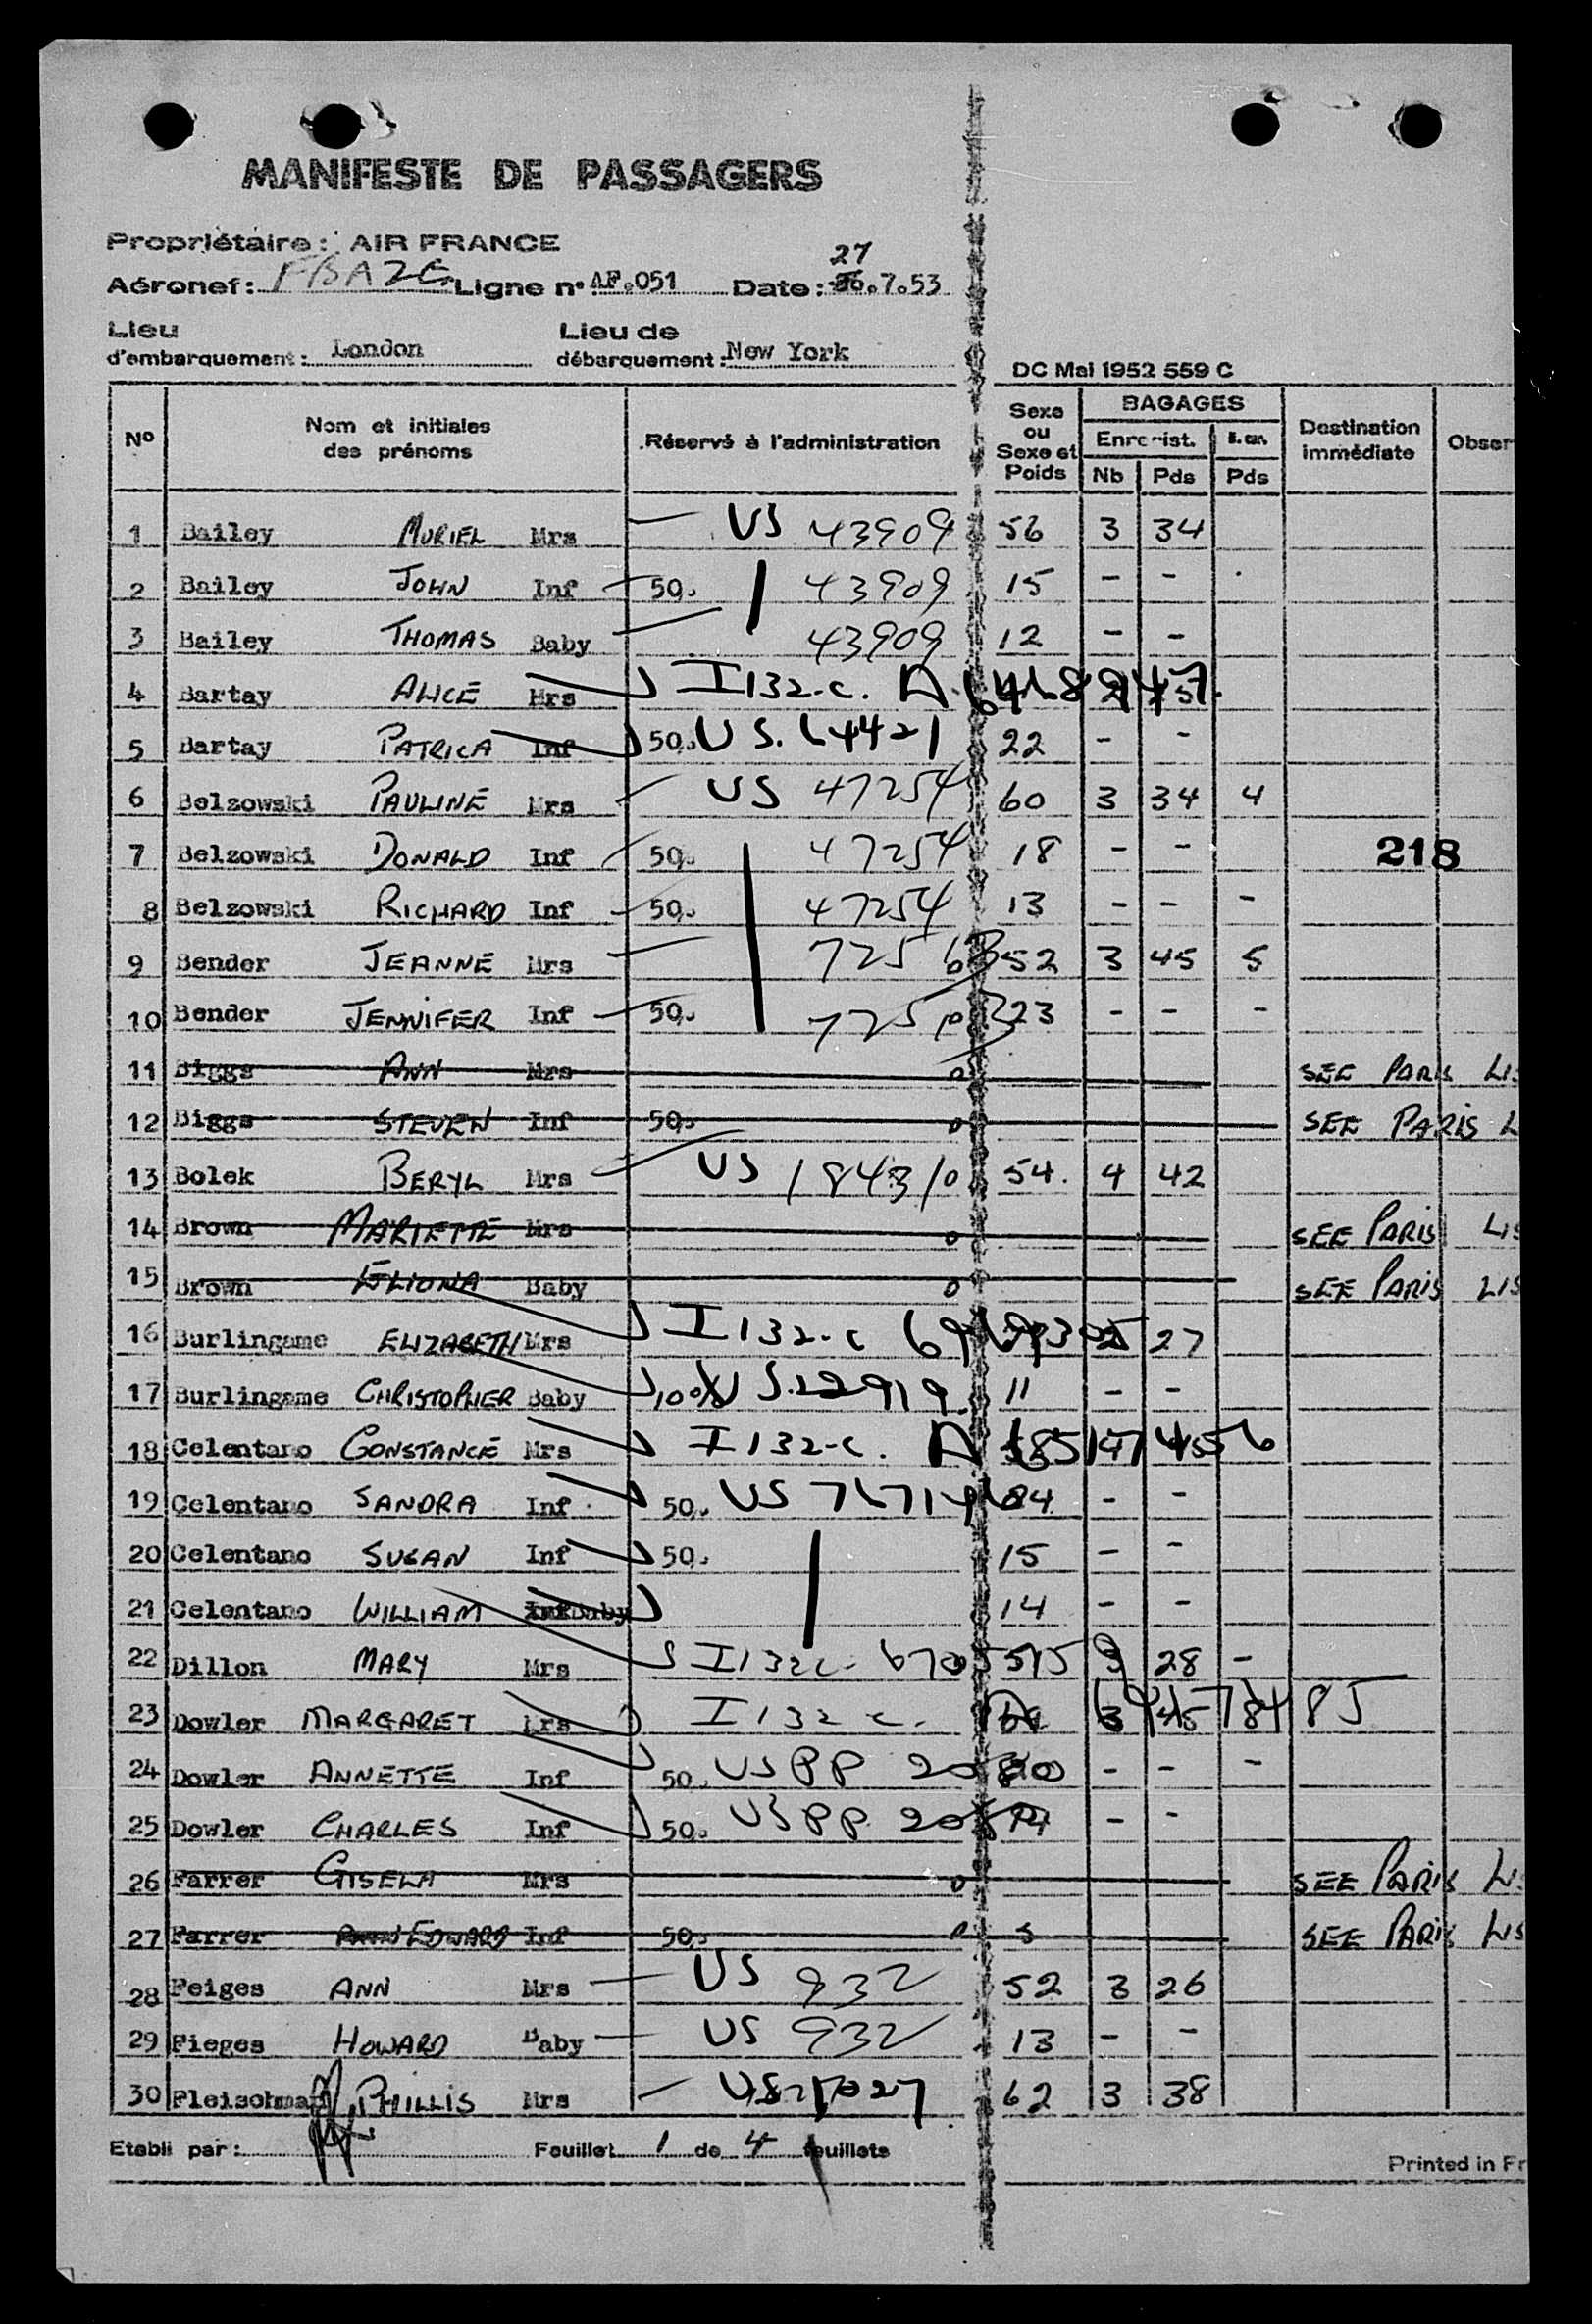 MANIFESTE DE PASSAGERS
Propriétaire : AIR FRANCE
27
Aéronef: FBAZG Ligne n° AF.051 Date: 26.7.53
Lieu d'embarquement: London Lieu de débarquement: New York
DC Mai 1952 559 C
No Nom et initiales des prénoms Réservé à l'administration Sexe ou Sexe et Poids BAGAGES Enregist. Nb Pds Pds Destination immédiate Obser
1 Bailey MURIEL Mrs US 43909 56 3 34
2 Bailey JOHN Inf 50. 43909 15 - -
3 Bailey THOMAS Baby 43909 12 - -
4 Bartay ALICE Mrs I132-c. A
5 Bartay PATRICA Inf 50. US. 64421 22 - -
6 Belzowski PAULINE Mrs US 47254 60 3 34 4
7 Belzowski DONALD Inf 50. 47254 18 - -
218
8 Belzowski RICHARD Inf 50. 47254 13 - - -
9 Bender JEANNE Mrs 72563 52 3 45 5
10 Bender JENNIFER Inf 50. 23 - - -
11 Biggs ANN Mrs 0 SEE PARIS LIS
12 Biggs STEVEN Inf 50. 0 SEE PARIS L
13 Bolek BERYL Mrs US 184310 54. 4 42
14 Brown MARIETTE Mrs 0 SEE PARIS LIS
15 Brown ELIONA Baby 0 SEE PARIS LIS
16 Burlingame ELIZABETH Mrs I132-c 27
17 Burlingame CHRISTOPHER Baby 11 - -
18 Celentano CONSTANCE Mrs I132-c. A
19 Celentano SANDRA Inf 50. US - -
20 Celentano SUSAN Inf 50. 15 - -
21 Celentano WILLIAM Baby 14 - -
22 Dillon MARY Mrs I132c- 28 -
23 Dowler MARGARET Mrs I132c.
24 Dowler ANNETTE Inf 50. US PP - - -
25 Dowler CHARLES Inf 50. US PP - -
26 Farrer GISELA Mrs 0 SEE PARIS LIS
27 Farrer EDWARD Inf 50. 0 SEE PARIS LIS
28 Feiges ANN Mrs US 932 52 3 26
29 Fieges HOWARD Baby US 932 13 - -
30 Fleischman PHILLIS Mrs 62 3 38
Etabli par : Feuillet 1 de 4 feuillets
Printed in Fr